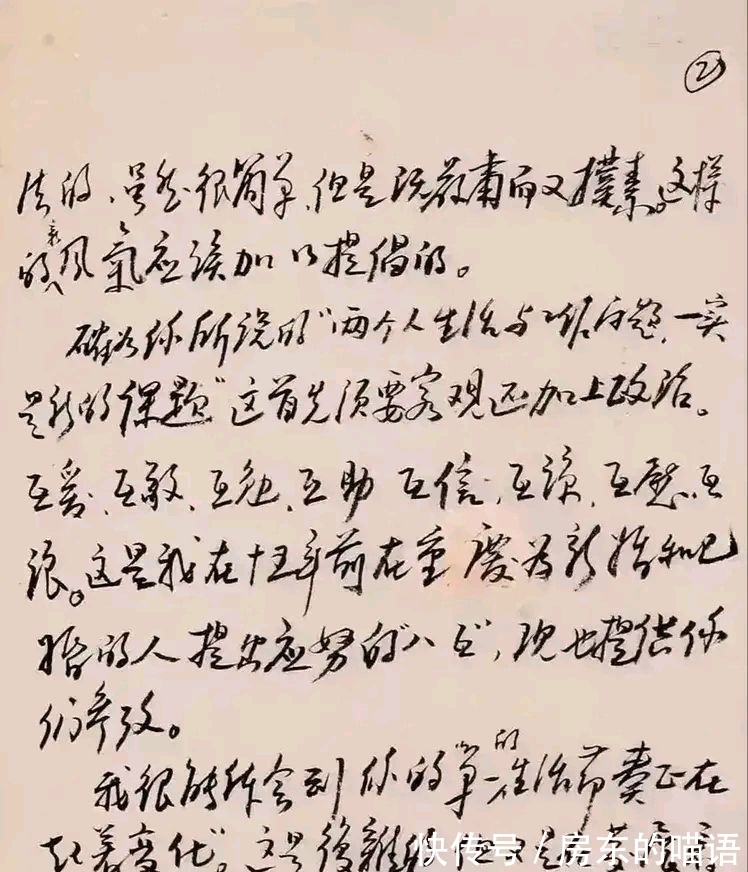 ②
法的，虽然很简单，但是既严肃而又撲素。这样
的新风氣应该加以提倡的。
确如你所说的“两个人生活与 问题，一实
是新的课题”这首先须要客观还加上政治。
互爱、互敬、互勉、互助 互信、互谅、互慰、互
这是我在十五年前在重慶为新婚和已
婚的人提出应努的“八互”，现也提供你
们参考。
我很能体会到你的“单一的生活节奏正在
起着变化”。这是
快传号 / 房东的喵语